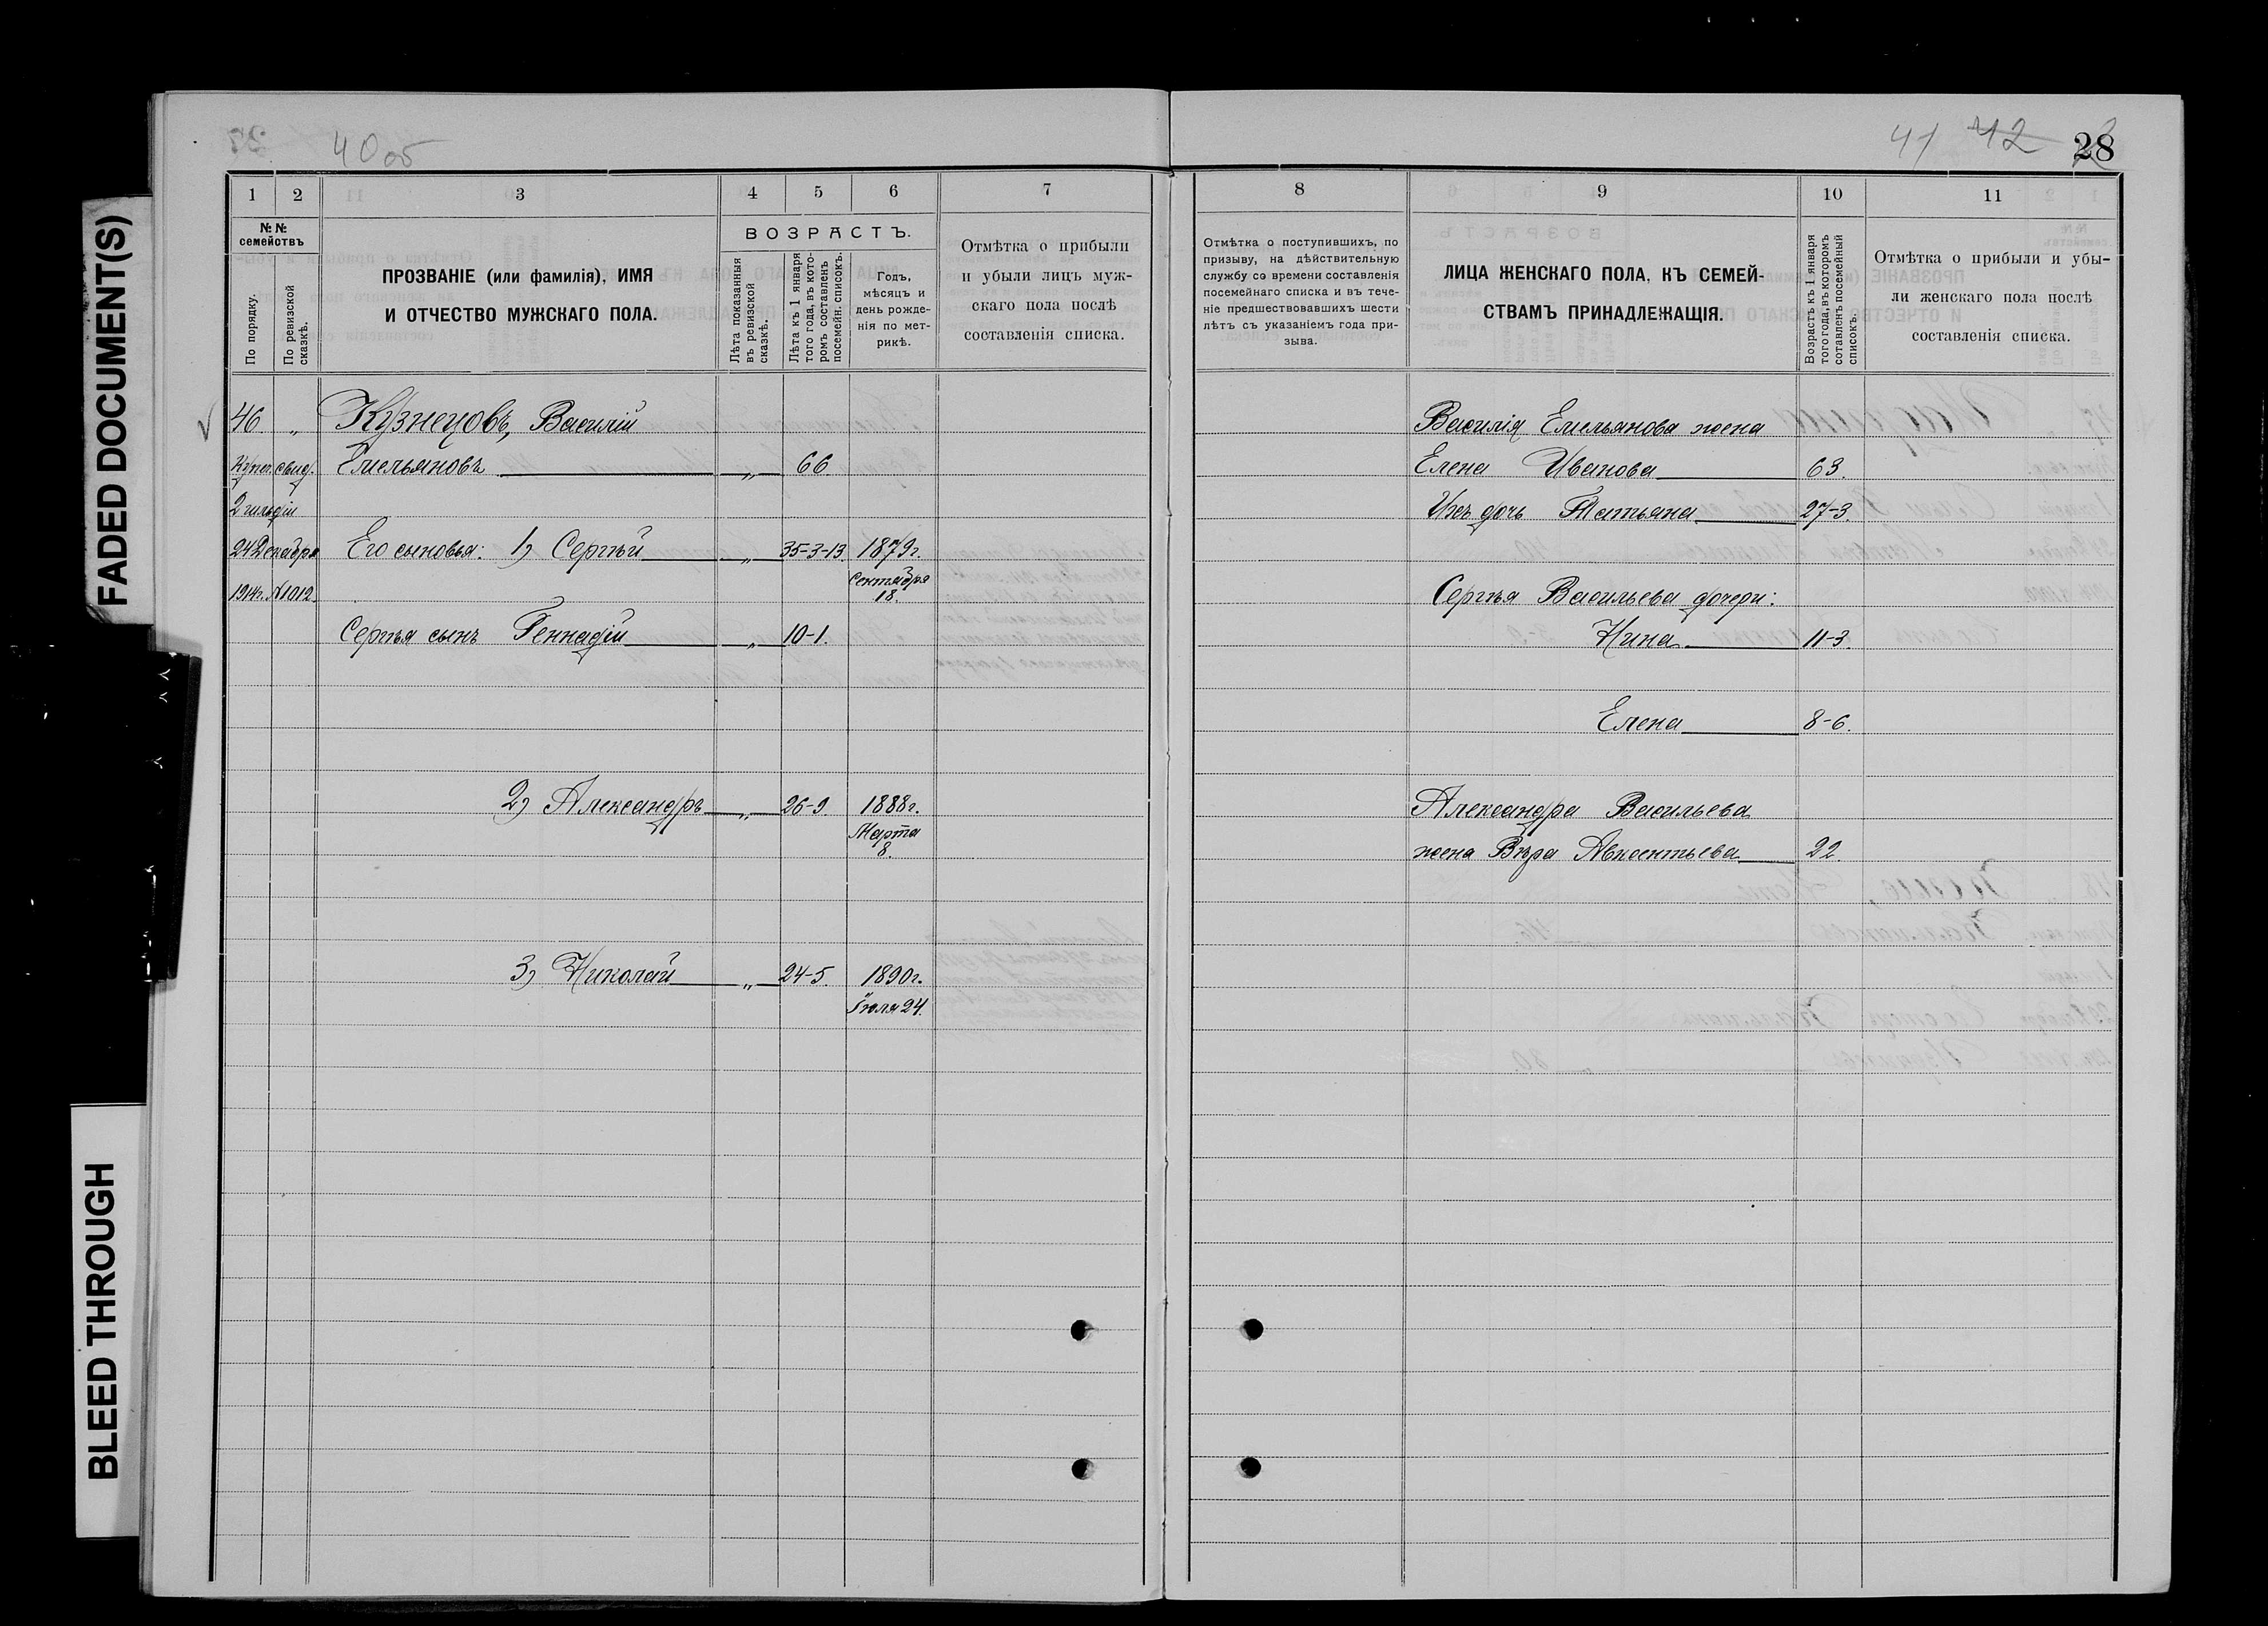 FADED DOCUMENT(S)
BLEED THROUGH
40об
41 42 28
1 2 3 4 5 6 7
№№ семействъ
По порядку.
По ревизской сказкѣ.
ПРОЗВАНІЕ (или фамилія), ИМЯ
И ОТЧЕСТВО МУЖСКАГО ПОЛА.
ВОЗРАСТЪ.
Лѣта показанныя
въ ревизской
сказкѣ.
Лѣта къ 1 января
того года, въ кото-
ромъ составленъ
посемейн. списокъ.
Годъ,
мѣсяцъ и
день рожде-
нія по мет-
рикѣ.
Отмѣтка о прибыли
и убыли лицъ муж-
скаго пола послѣ
составленія списка.
46. „ Кузнецовъ, Василій
Купеч. свид. Емельяновъ „ 66
2 гильдіи
24 Декабря Его сыновья: 1) Сергѣй „ 35-3-13. 1879г.
1914г. №1012. Сентября
18.
Сергѣя сынъ Геннадій „ 10-1.
2) Александръ „ 26-9. 1888г.
Марта
8.
3) Николай „ 24-5. 1890г.
Іюля 24.
8 9 10 11
Отмѣтка о поступившихъ, по
призыву, на дѣйствительную
службу со времени составленія
посемейнаго списка и въ тече-
ніе предшествовавшихъ шести
лѣтъ съ указаніемъ года при-
зыва.
ЛИЦА ЖЕНСКАГО ПОЛА, КЪ СЕМЕЙ-
СТВАМЪ ПРИНАДЛЕЖАЩІЯ.
Возрастъ къ 1 января
того года, въ которомъ
сотавленъ посемейный
списокъ.
Отмѣтка о прибыли и убы-
ли женскаго пола послѣ
составленія списка.
Василія Емельянова жена
Елена Иванова 63.
Ихъ дочь Татьяна 27-3.
Сергѣя Васильева дочери:
Нина 11-3.
Елена 8-6.
Александра Васильева
жена Вѣра Авксентьева 22.